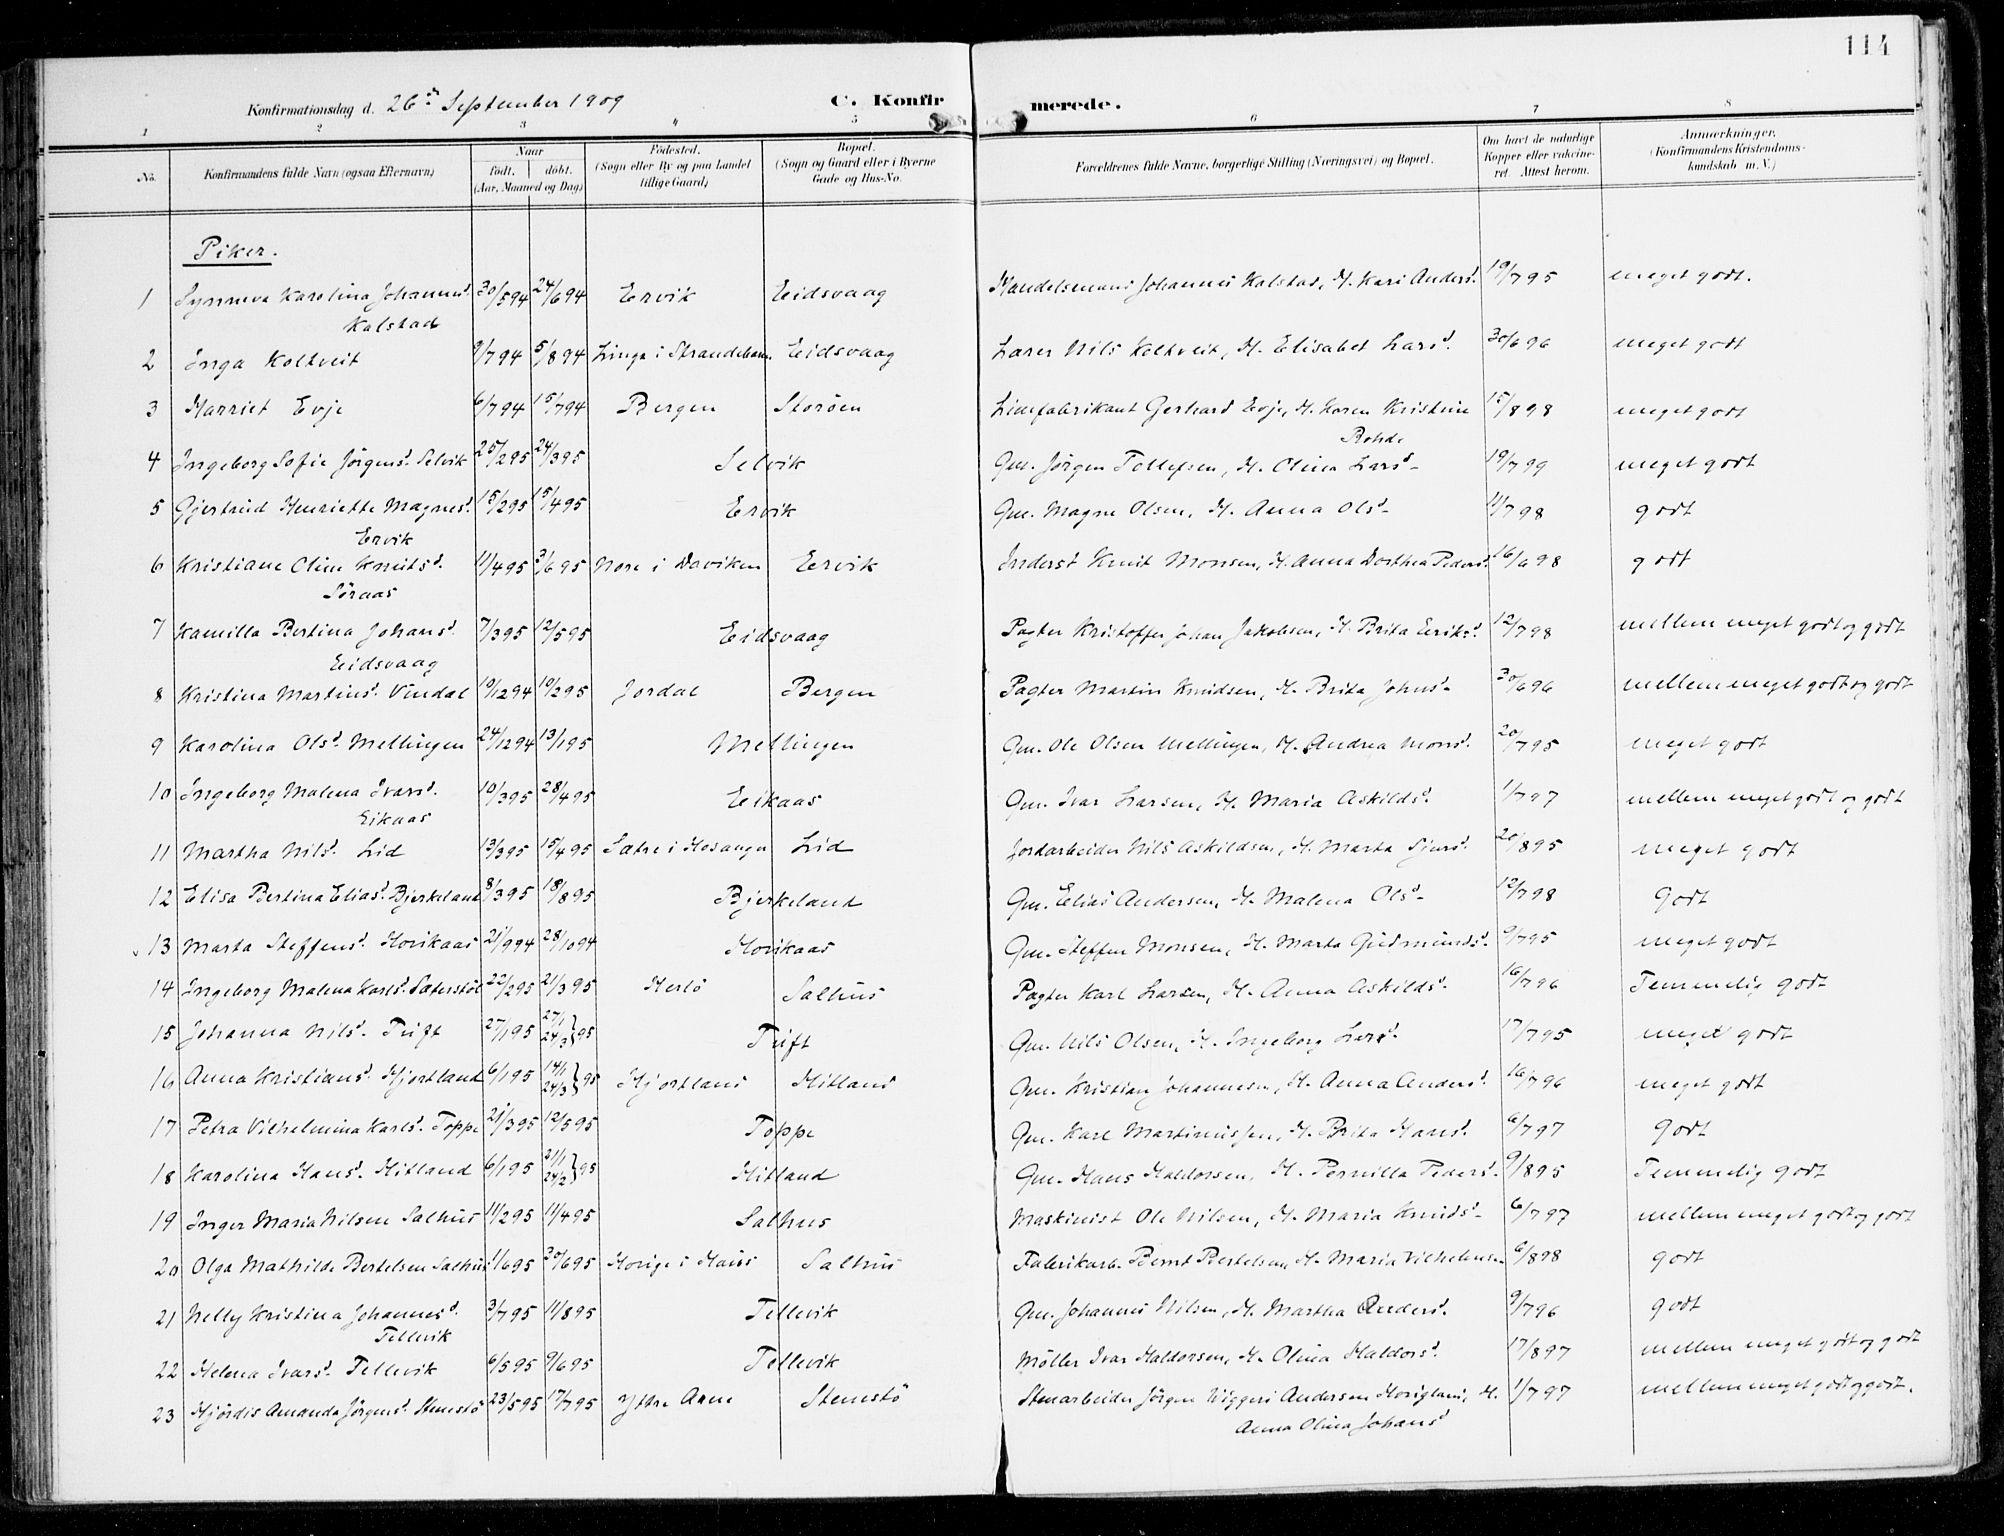 114
Konfirmationsdag d. 26de September 1909 C. Konfirmerede.
1 2 3 4 5 6 7 8
No. Konfirmandens fulde Navn (ogsaa Efternavn) Naar født. døbt. (Aar, Maaned og Dag) Fødested. (Sogn eller By og paa Landet tillige Gaard) Bopæl. (Sogn og Gaard eller i Byerne Gade og Hus-No. Forældrenes fulde Navne, borgerlige Stilling (Næringsvei) og Bopæl. Om havt de naturlige Kopper eller vakcineret. Attest herom. Anmærkninger. (Konfirmandens Kristendomskundskab m. V.)
Piker.
1 Synneva Karolina Johannesd. 30/5 94 24/6 94 Ervik Eidsvaag Handelsmand Johannes Kalstad, H. Kari Andersd. 19/7 95 meget godt.
Kalstad
2 Inga Koltveit 9/7 94 5/8 94 Linga i Strandebarm Eidsvaag Lærer Nils Koltveit, H. Elisabet Larsd. 30/6 96 meget godt
3 Harriet Evje 6/7 94 15/7 94 Bergen Storøen Limfabrikant Gerhard Evje, H. Karen Kristine 15/8 98 meget godt
Rohde
4 Ingeborg Sofie Jørgensd. Selvik 25/2 95 24/3 95 Selvik Gm. Jørgen Tollefsen, H. Olina Larsd. 19/7 99 meget godt
5 Gjertrud Henriette Magnesd. 15/2 95 15/4 95 Ervik Gm. Magne Olsen, H. Anna Olsd. 11/7 98 godt
Ervik
6 Kristiane Oline Knutsd. 11/4 95 3/6 95 Nore i Daviken Ervik Inderst Knut Monsen, H. Anna Dorthea Pedersd. 16/6 98 godt
Søraas
7 Kamilla Bertina Johansd. 7/3 95 12/5 95 Eidsvaag Pagter Kristoffer Johan Jakobsen, H. Brita Eeriksd. 12/7 98 mellem meget godt og godt
Eidsvaag
8 Kristina Martinsd. Vindal 19/12 94 10/2 95 Jordal Bergen Pagter Martin Knudsen, H. Brita Johnsd. 30/6 96 mellem meget godt og godt
9 Karolina Olsd. Mellingen 24/12 94 13/1 95 Mellingen Gm. Ole Olsen Mellingen, H. Andrea Monsd. 20/7 95 meget godt
10 Ingeborg Malena Ivarsd. 10/3 95 28/4 95 Eikaas Gm. Ivar Larsen, H. Maria Askildsd. 1/7 97 mellem meget godt og godt
Eikaas
11 Martha Nilsd. Lid 13/3 95 15/4 95 Sætre i Hosanger Lid Jordarbeider Nils Askildsen, H. Marta Sjursd. 20/8 95 meget godt
12 Elisa Bertina Eliasd. Bjerkeland 8/3 95 18/8 95 Bjerkeland Gm. Elias Andersen, H. Malena Olsd. 12/7 98 Godt
13 Marta Steffensd. Horikaas 21/9 94 28/10 94 Horikaas Gm. Steffen Monsen, H. Marta Gudmundsd. 9/7 95 meget godt
14 Ingeborg Malena Karlsd. Sæterstøl 22/2 95 21/3 95 Herlø Salhus Pagter Karl Larsen, H. Anna Askildsd. 16/7 96 Temmelig godt
15 Johanna Nilsd. Tuft 27/1 95 27/1 24/3 } 95 Tuft Gm. Nils Olsen, H. Ingeborg Larsd. 17/7 95 meget godt
16 Anna Kristiansd. Hjortland 6/1 95 14/1 24/3 } 95 Hjortland Hitland Gm. Kristian Johannesen, H. Anna Andersd. 16/7 96 meget godt
17 Petra Vilhelmina Karlsd. Toppe 21/3 95 12/5 95 Toppe Gm. Karl Martinussen, H. Brita Hansd. 6/7 97 Godt
18 Karolina Hansd. Hitland 6/1 95 21/1 24/2 } 95 Hitland Gm. Hans Haldorsen, H. Pernilla Pedersd. 9/8 95 Temmelig godt
19 Inger Maria Nilsen Salhus 11/2 95 11/4 95 Salhus Maskinist Ole Nilsen, H. Maria Knudsd. 6/7 97 mellem meget godt og godt
20 Olga Mathilde Bertelsen Salhus 1/6 95 30/6 95 Horige i Haus Salhus Fabrikarb. Bernt Bertelsen, H. Maria Vilhelmsen 6/8 98 godt
21 Nelly Kristina Johannesd. 3/7 95 11/8 95 Tellevik Gm. Johannes Nilsen, H. Martha Andersd. 9/7 96 godt
Tellevik
22 Helena Ivarsd. Tellevik 6/5 95 9/6 95 Tellevik Møller Ivar Haldorsen, H. Olina Haldorsd. 17/8 97 mellem meget godt og godt
23 Hjördis Amanda Jørgensd. Stemstø 23/5 95 17/7 95 Ytre Arne Stemstø Stenarbeider Jørgen Wiggers Andersen Horiglami, H. 1/7 97 mellem meget godt og godt.
Anna Olina Johansd